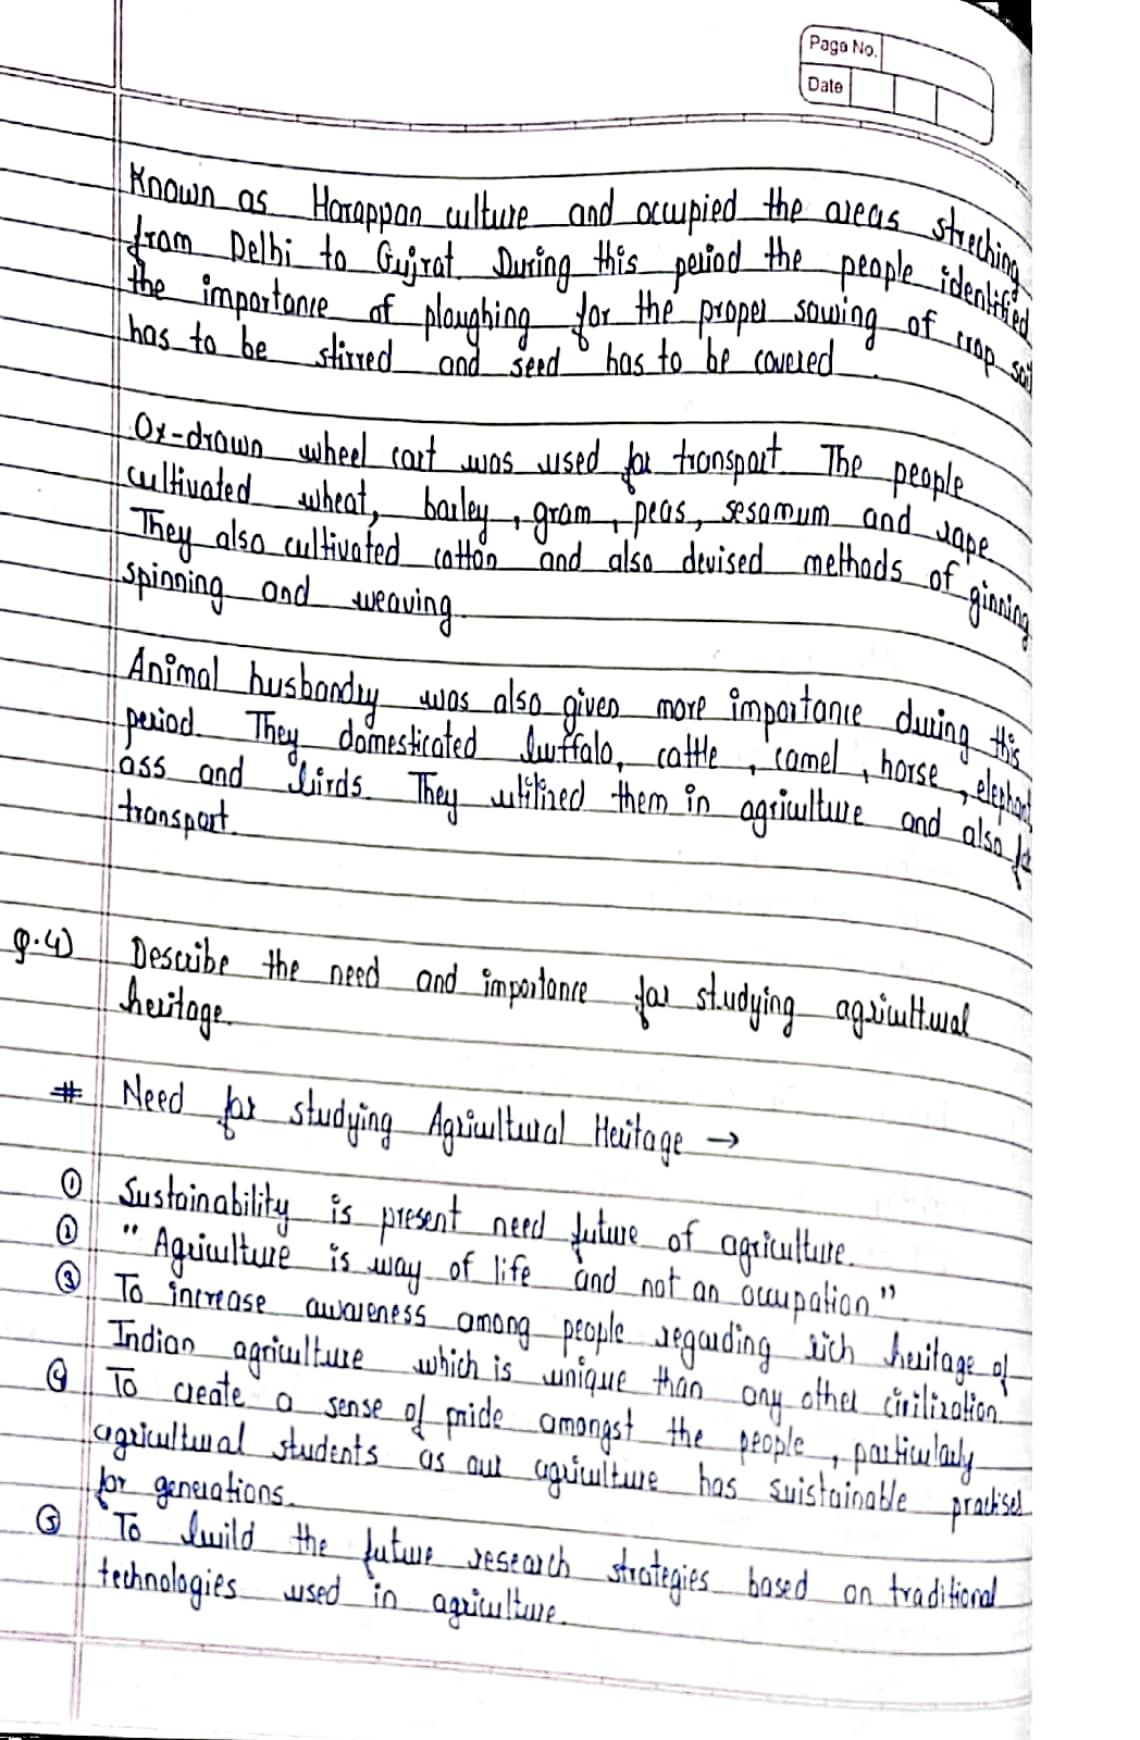 Page No.
Date
Known as Harappan culture and occupied the areas streching
from Delhi to Gujrat. During this period the people identified
the importance of ploughing for the proper sowing of crop soil
has to be stirred and seed has to be covered .
Ox-drawn wheel cart was used for transport. The people
cultivated wheat, barley, gram, peas, sesamum and rape
They also cultivated cotton and also devised methods of ginning
spinning and weaving
Animal husbandry was also given more importance during this
period. They domesticated buffalo, cattle, camel, horse, elephant
ass and birds. They utilized them in agriculture and also for
transport.
Q.4) Describe the need and importance for studying agricultural
heritage.
# Need for studying Agricultural Heritage →
① Sustainability is present need future of agriculture.
② "Agriculture is way of life and not an occupation"
③ To increase awareness among people regarding rich heritage of
Indian agriculture which is unique than any other civilization.
④ To create a sense of pride amongst the people, particularly
agricultural students as our agriculture has suistainable practises
for generations.
⑤ To build the future research strategies based on traditional
technologies used in agriculture.